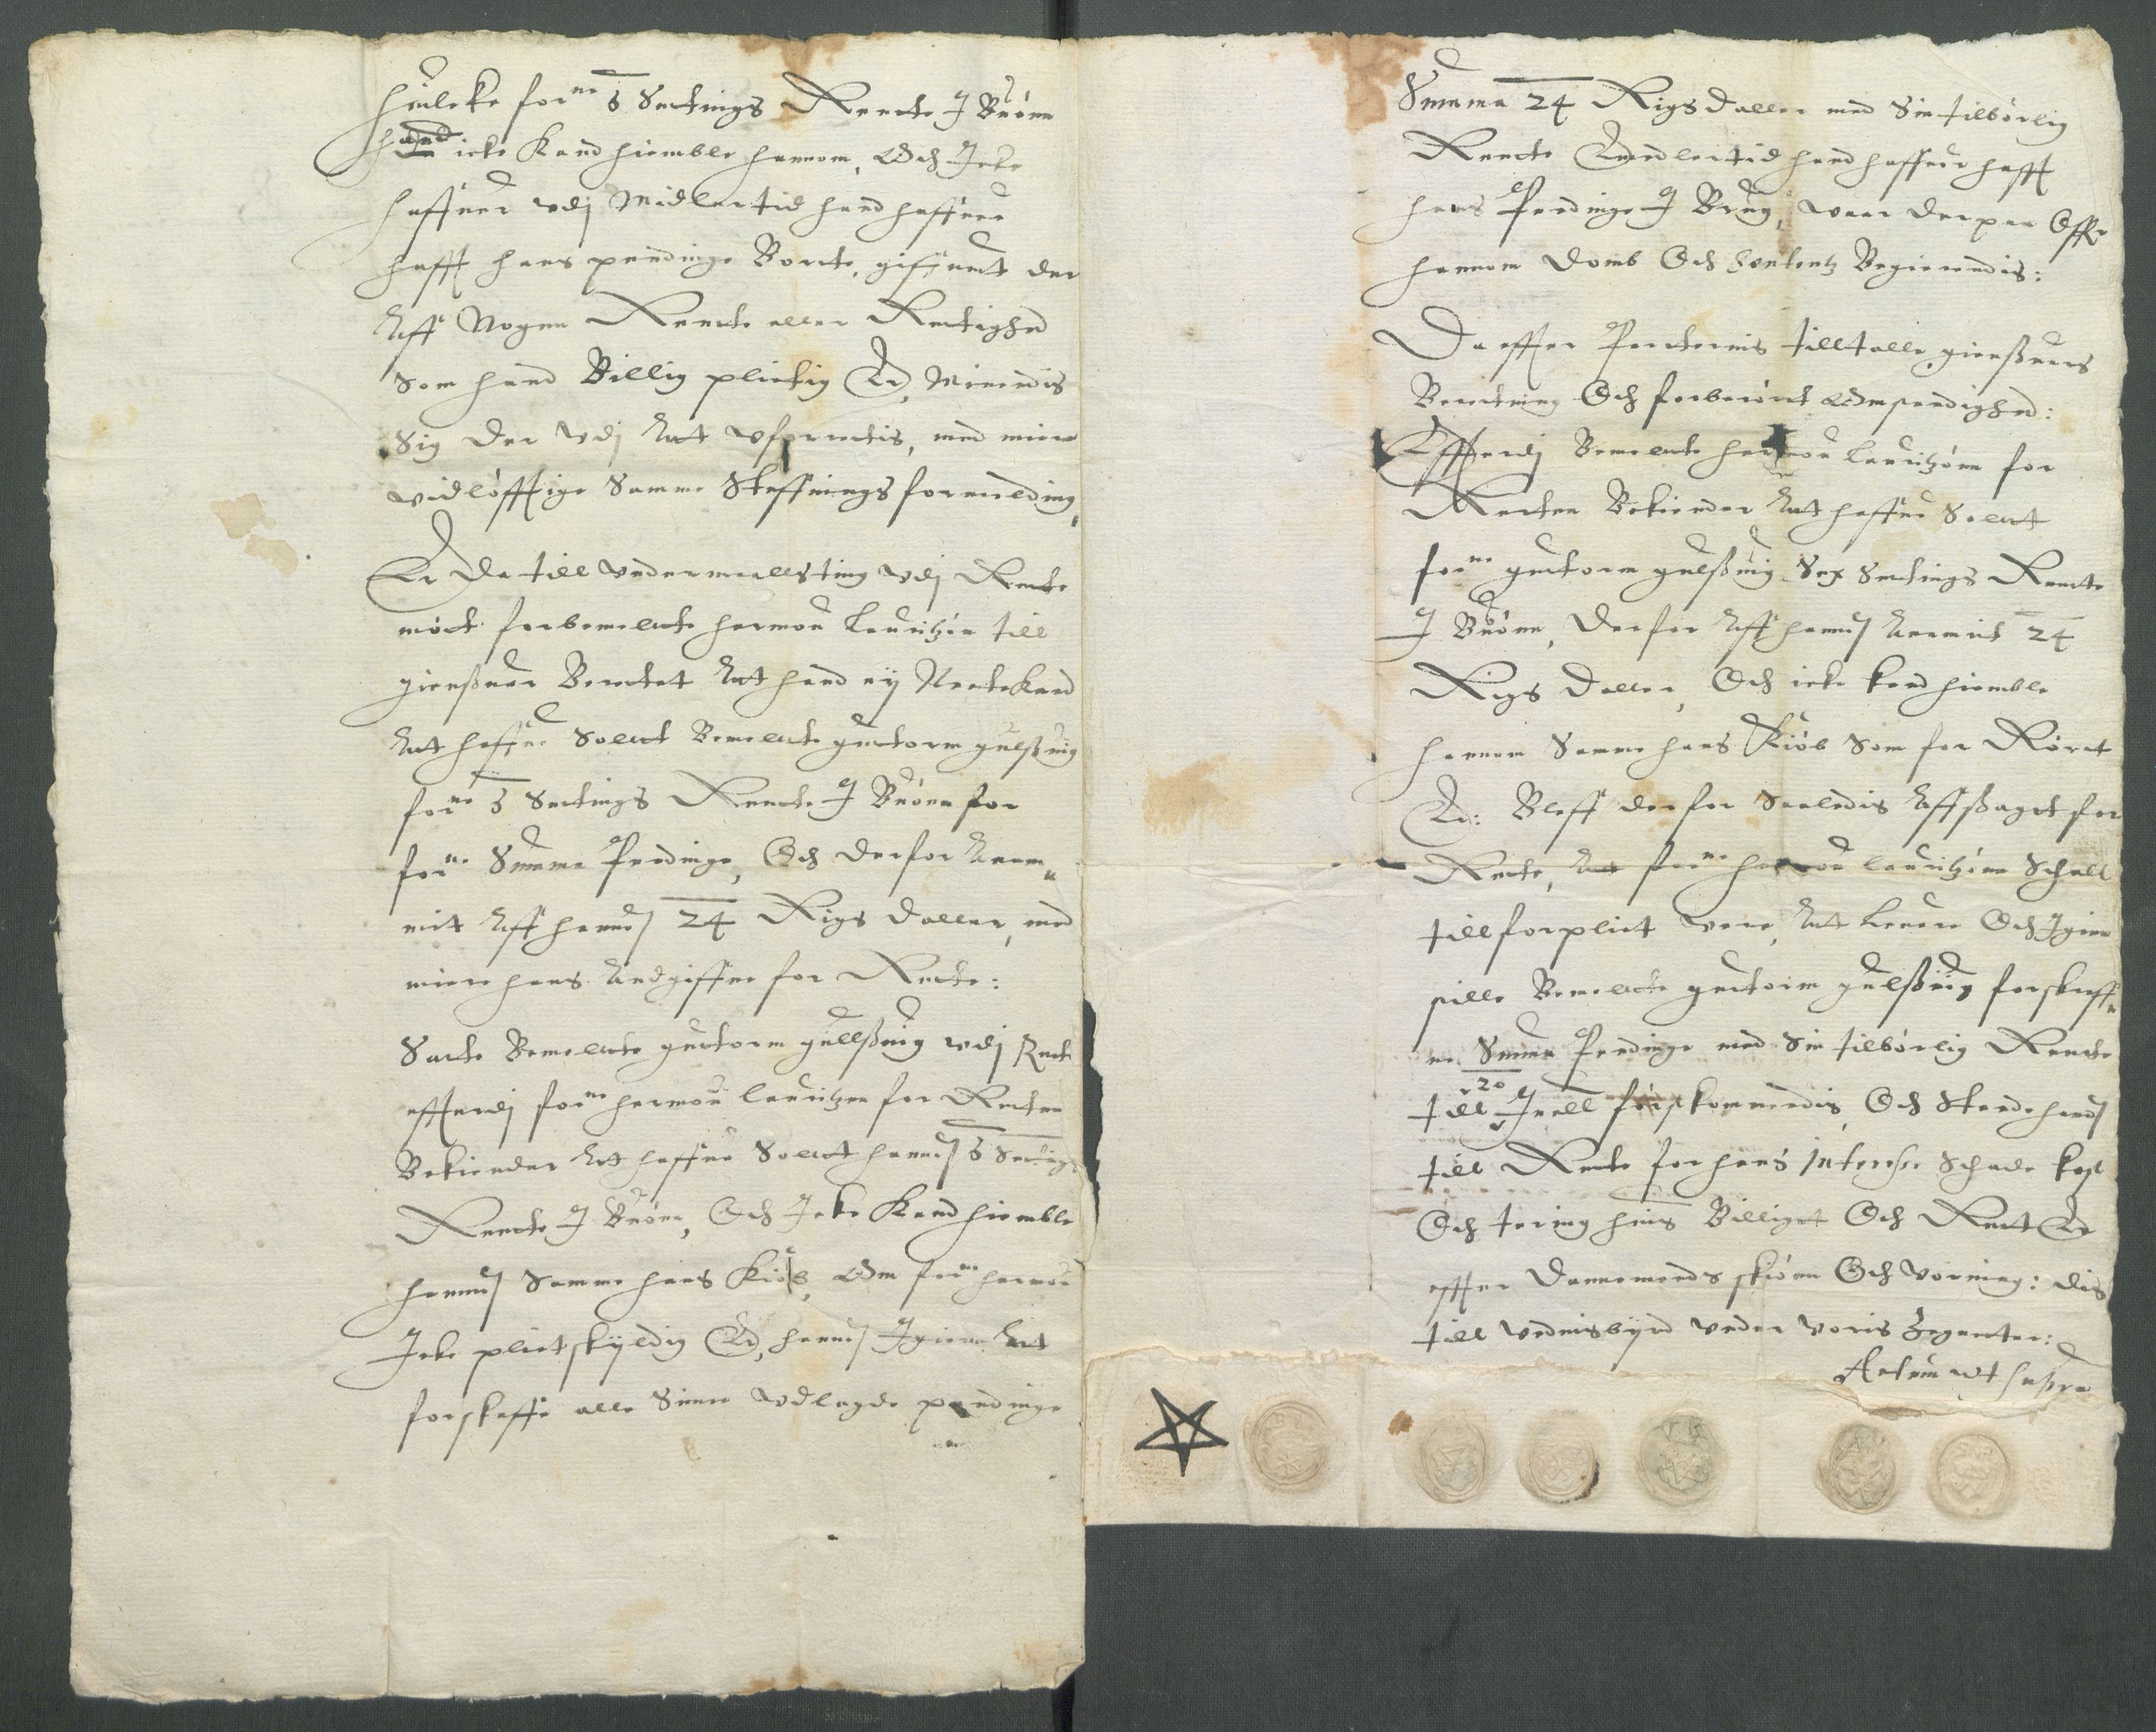 huilcke forne 6 Settings Rente J Buónn
hand icke Kand hiemble hannom, Och Jcke
haffuer vdj Midlertid hand haffuer
hafft hans pendinge Borte, giffuet der
Aff Nogen Rente eller Rettighed
Som hand Billig plictig Er, Menendis
Sig der vdj Att vforrettis, med mere
vidlófftige Samme Steffnings formelding,
Er da till vndermaallsting vdj Rette
mótt forbemelte hermon lauritzón till
giensuar Berettet Att hand ey Necte Kand
Att haffue Solldt Bemelte guttorm gulsuig
forne 6 Settings Rente J Buónn for
forne Summa Pendinge, Och derfor Anam„
mit Aff hannem 24 Rigs daller, med
mere hans Andgiffue for Rette:
Satte Bemelte guttorm gullsuig vdj Rett
efftterdj forne hermon lauritzen for Retten
Bekiender Att haffue Solldt hannem 6 Settings
Rente J Buónn, Och Jcke Kand hiemble
hannem Samme hans Kiób, Om forne hermon
Jcke plictskyldig Er, hannem Jgienn Att
forskaffe alle Sinne vdlagde pendinge
Summa 24 Rigsdaller med Sin tilbórlig
Rente Emedlertid hand haffuer hafft
hans Pendinge J Brug, waar derpaa Offr
hannom domb Och Sententz Begierendis:
Da effter Parternis tilltalle giensuars
Beretning Och forberórt Omstendighed:
Effterdj Bemelte hermon lauritzónn for
Retten Bekiender Att haffue Solldt
forne guttorm gulsuig Sex Settings Rente
J Buónn, derfor Aff hannem Anamit 24
Rigs daller, Och icke kand hiemble
hannom Samme hans Kiób Som for Rórt
Er: Bleff derfor Saaledis Affsagt for
Rette, Att forne hermon lauritzónn Schall
tillforplict vere, Att leuere Och Jgien
stille Bemelte guttorm gulsuig forskreff„
ne Summa Pendinge med Sin tilbórlig Rente
20
till Juell fórstkommendis, Och Stande hannem
till Rette for hans Interesse Schade kost
Och tering huis Billigt Och Rett Er
effter dannemends skiónn Och Vorning: dis
till vidnisbyrd vnder Voris Zegneter:
Actum vt supra